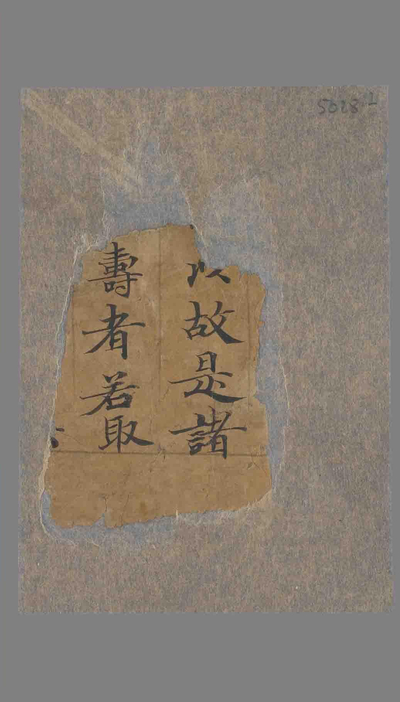 5028 1
以故是諸
壽者若取